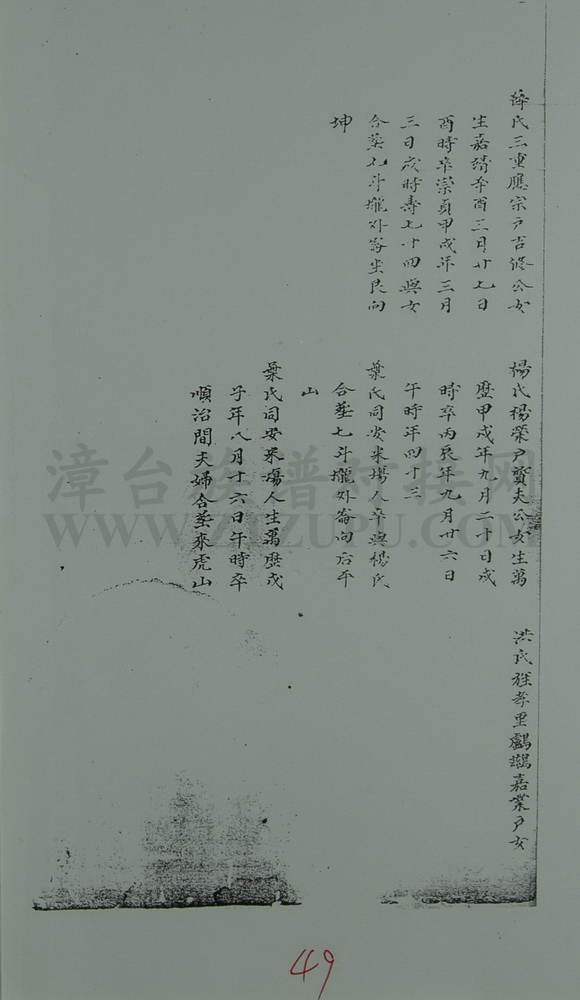 薛氏三重應宗戶吉修公女
生嘉靖辛酉三月廿七日
酉時卒崇貞甲戌年三月
三日戌時壽七十四與女
合葬七斗壠外崙坐艮向
坤
楊氏楊榮戶賢夫公女生萬
歷甲戌年九月二十日戌
時卒丙辰年九月廿六日
午時年四十三
葉氏同安來場人卒與楊氏
合葬七斗壠外崙向后平
山
葉氏同安來場人生萬歷戊
子年八月十六日午時卒
順治間夫婦合葬來虎山
洪氏姪孝里嘉業戶女
漳台族譜對接網
WWW.ZTZUPU.COM
49